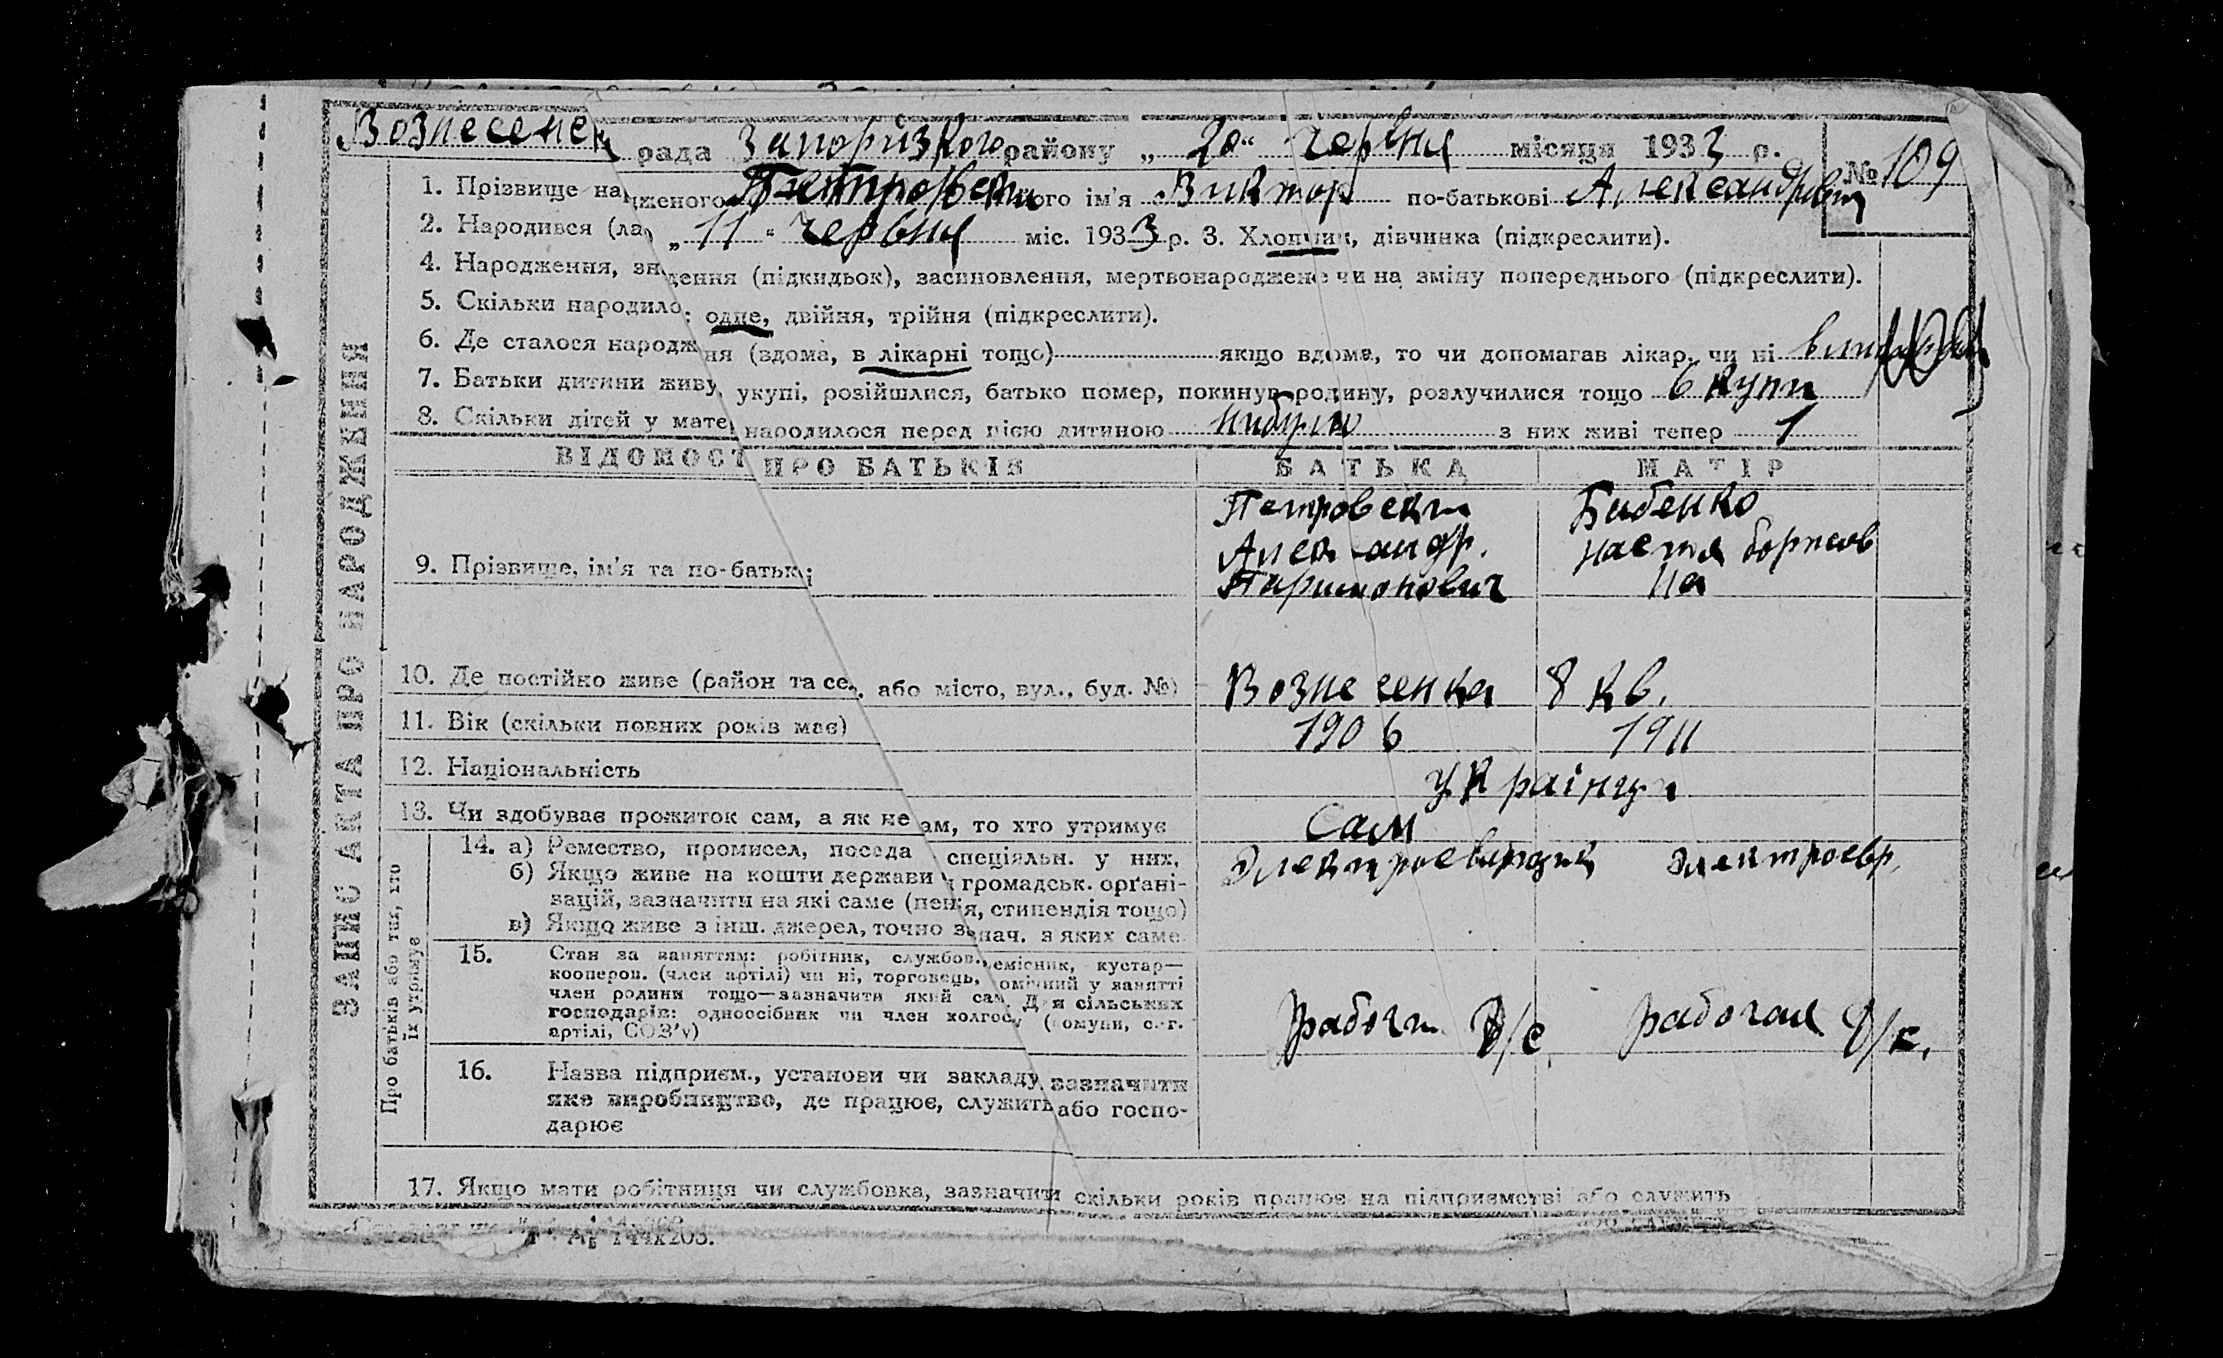 Вознесенск рада Запорізкого району „ 20 “ червня місяця 1933 р.
№ 109
1. Прізвище на дженого Петровски ого ім'я Виктор по-батькові Александрович
2. Народився (ла) „ 11 “ червня міс. 1933 р. 3. Хлопчик, дівчинка (підкреслити).
4. Народження, зн дення (підкидьок), засиновлення, мертвонароджене чи на зміну попереднього (підкреслити).
5. Скільки народило : одне, двійня, трійня (підкреслити).
6. Де сталося народження (вдома, в лікарні тощо) якщо вдома, то чи допомагав лікар, чи ні
7. Батьки дитини живу укупі, розійшлися, батько помер, покинув родину, розлучилися тощо вкупи
8. Скільки дітей у мате народилося перед цією дитиною нибуло з них живі тепер 1
ВІДОМОСТ ПРО БАТЬКІВ БАТЬКА МАТІР
9. Прізвище, ім'я та по-батьк
Петровски
Бабенко
Александр.
Настя борисов
Паримонович
на
10. Де постійно живе (район та се або місто, вул., буд. №) Вознесенка 8 кв.
11. Вік (скільки повних років має) 1906 1911
12. Національність Українци
13. Чи здобуває прожиток сам, а як не сам, то хто утримує Сам
14. а) Ремество, промисел, посада спеціяльн. у них. Электросварщик электросвр.
б) Якщо живе на кошти держави громадськ. орґані-
зацій, зазначити на які саме (пенія, стипендія тощо)
в) Якщо живе з інш. джерел, точно знач. з яких саме
15. Стан за заняттям: робітник, службов. емісник, кустар—
кооперов. (член артілі) чи ні, торговець, омічний у занятті
член родини тощо—зазначити який сам. Для сільських
господарів: одноосібник чи член колгос (комуни, с.-г.
артілі, СОЗ'у)
рабочи Д/с. рабочая Д/с.
16. Назва підприєм., установи чи закладу, зазначити
яке виробництво, де працює, служить або госпо-
дарює
17. Якщо мати робітниця чи службовка, зазначити скільки років працює на підприємстві або служить
ЗАПИС АКТА ПРО НАРОДЖЕННЯ
Про батьків або тих, хто
їх утримує